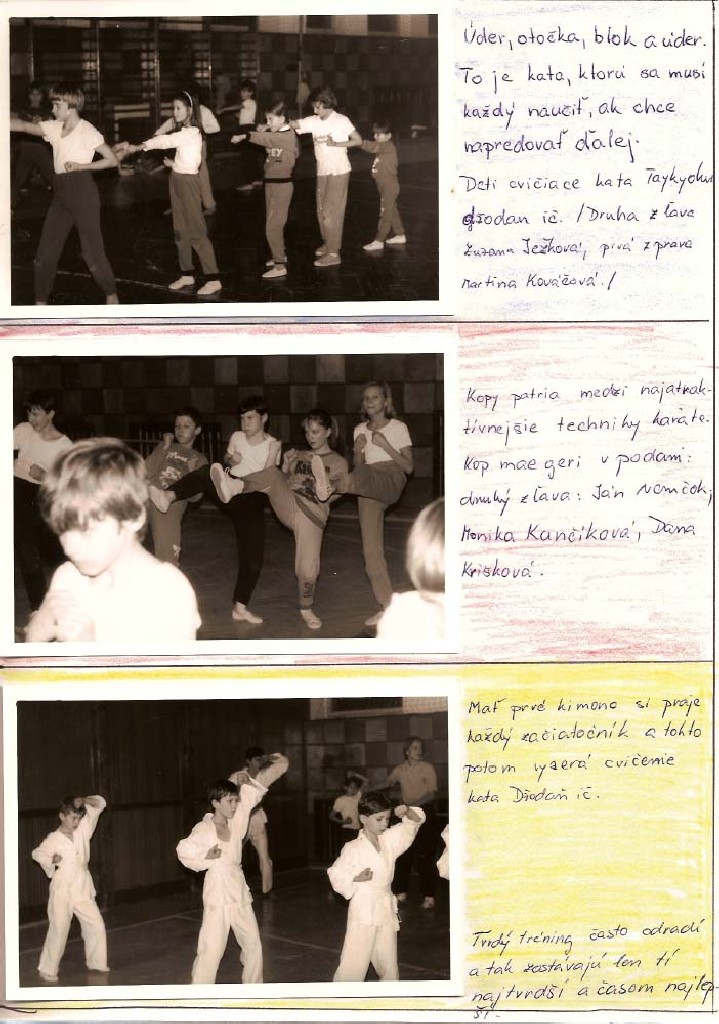 Úder, otočka, blok a úder.
To je kata, ktorú sa musí
každý naučiť, ak chce
napredovať ďalej.
Deti cvičiace kata Taykyoku
džodan ič. /Druha z ľava
Zuzana Ježková, prvá z prava
Martina Kováčová./
Kopy patria medzi najatrak-
tívnejšie techniky karate.
Kop mae geri v podaní:
druhý z ľava: Ján Nemčok,
Monika Kančíková, Dana
Krisková.
Mať prvé kimono si praje
každý začiatočník a takto
potom vyzerá cvičenie
kata Džodan ič.
Tvrdý tréning často odradí
a tak zostávajú len tí
najtvrdší a časom najlep-
ší.